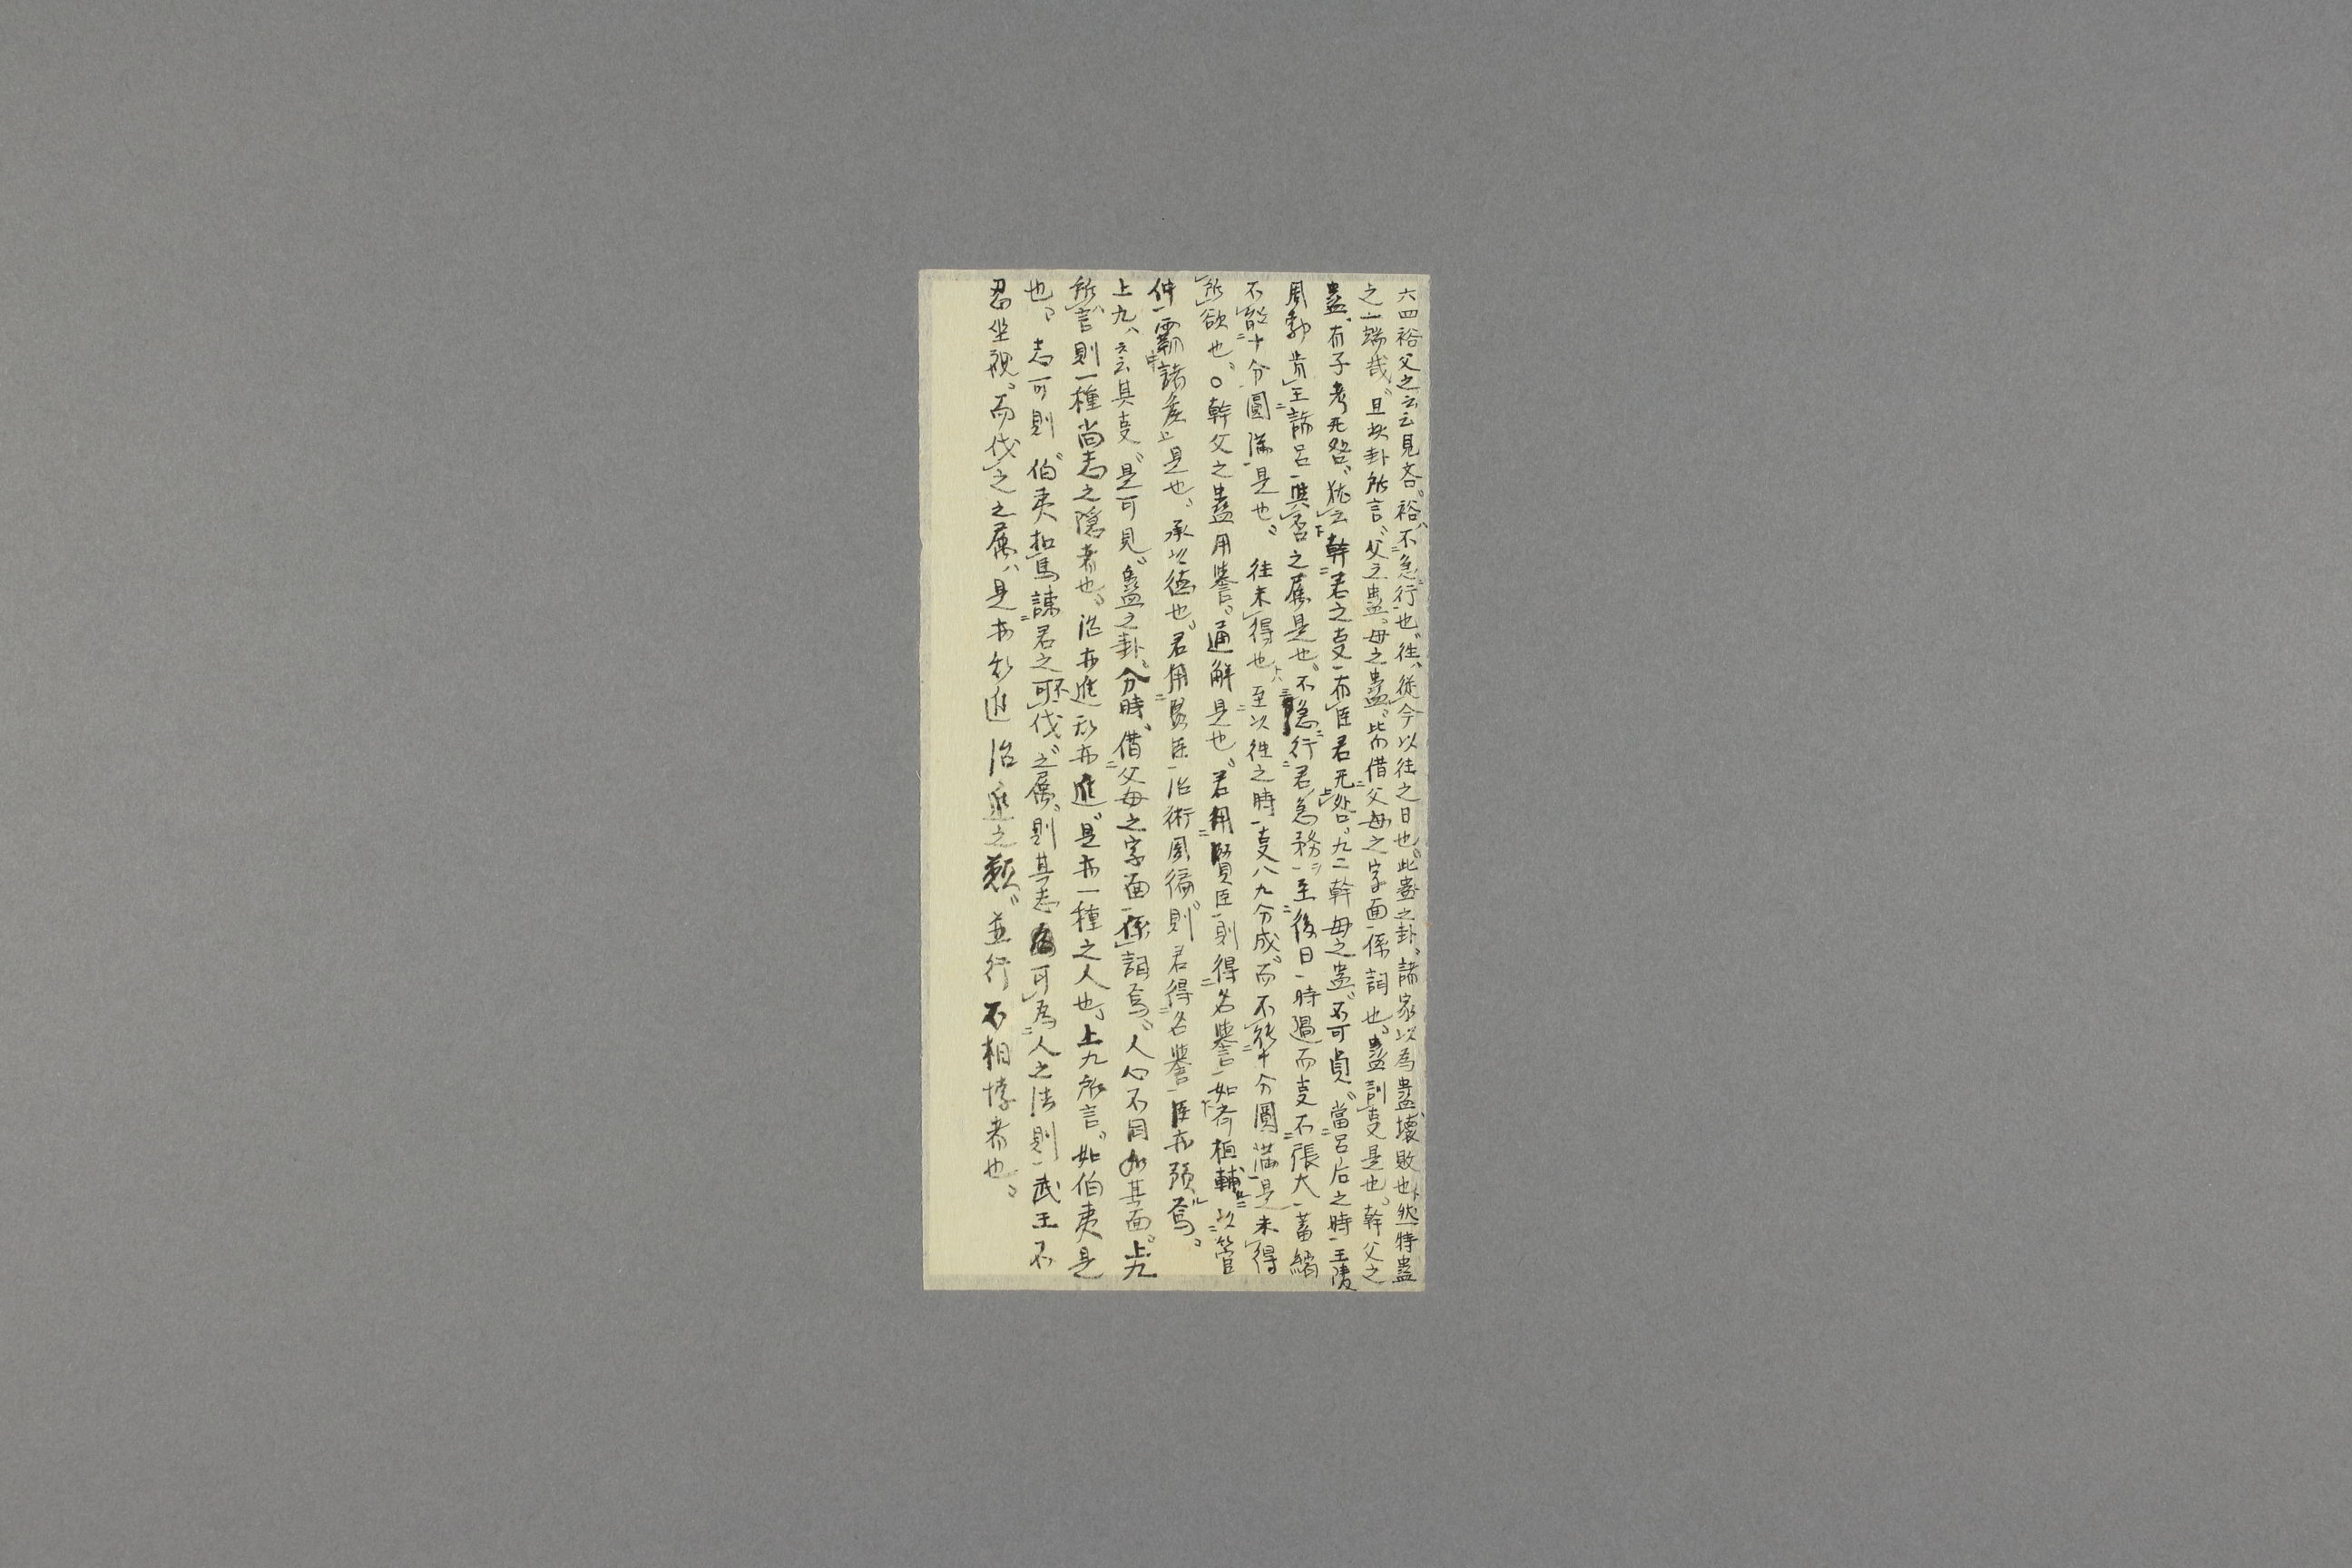 六四裕父之云云見吝。裕ハ不急行也。往ハ從今以往之日也。此蠱之卦、諸家以為蠱壞敗也。然特蠱
之一端哉。且此卦所言、父之蠱、母之蠱、皆借父母之字面係詞也。蠱訓㕝是也。幹父之
蠱、有子考无咎、猶云幹君之㕝有臣君无咎。九二幹母之蠱、不可貞。當呂后之時王陵
周勃肯王諸呂與否之属是也。不隠行君急務至後日時過而㕝不張大蓄縮
不能十分圓満是也。往未得也ハ至以往之時㕝八九分成、而不能十分圓満是未得
所欲也。○幹父之蠱用譽。通解是也。君用賢臣則得名譽如齊桓輔以管
仲霸諸侯是也。承以德也。君用賢臣治術周徧、則君得名譽臣亦預焉。
上九ハ云其㕝、是可見。蠱之卦、分時、借父母之字面係詞焉。人心不同如其面。上九
所言則一種尚志之隠者也。治亦進乱亦進、是亦一種之人也。上九所言、如伯夷是
也。志可則、伯夷扣馬諌君之不可伐之属、則其志可為人之法則武王不
忍坐視、而伐之之属ハ是亦乱進治進之類、並行不相悖者也。